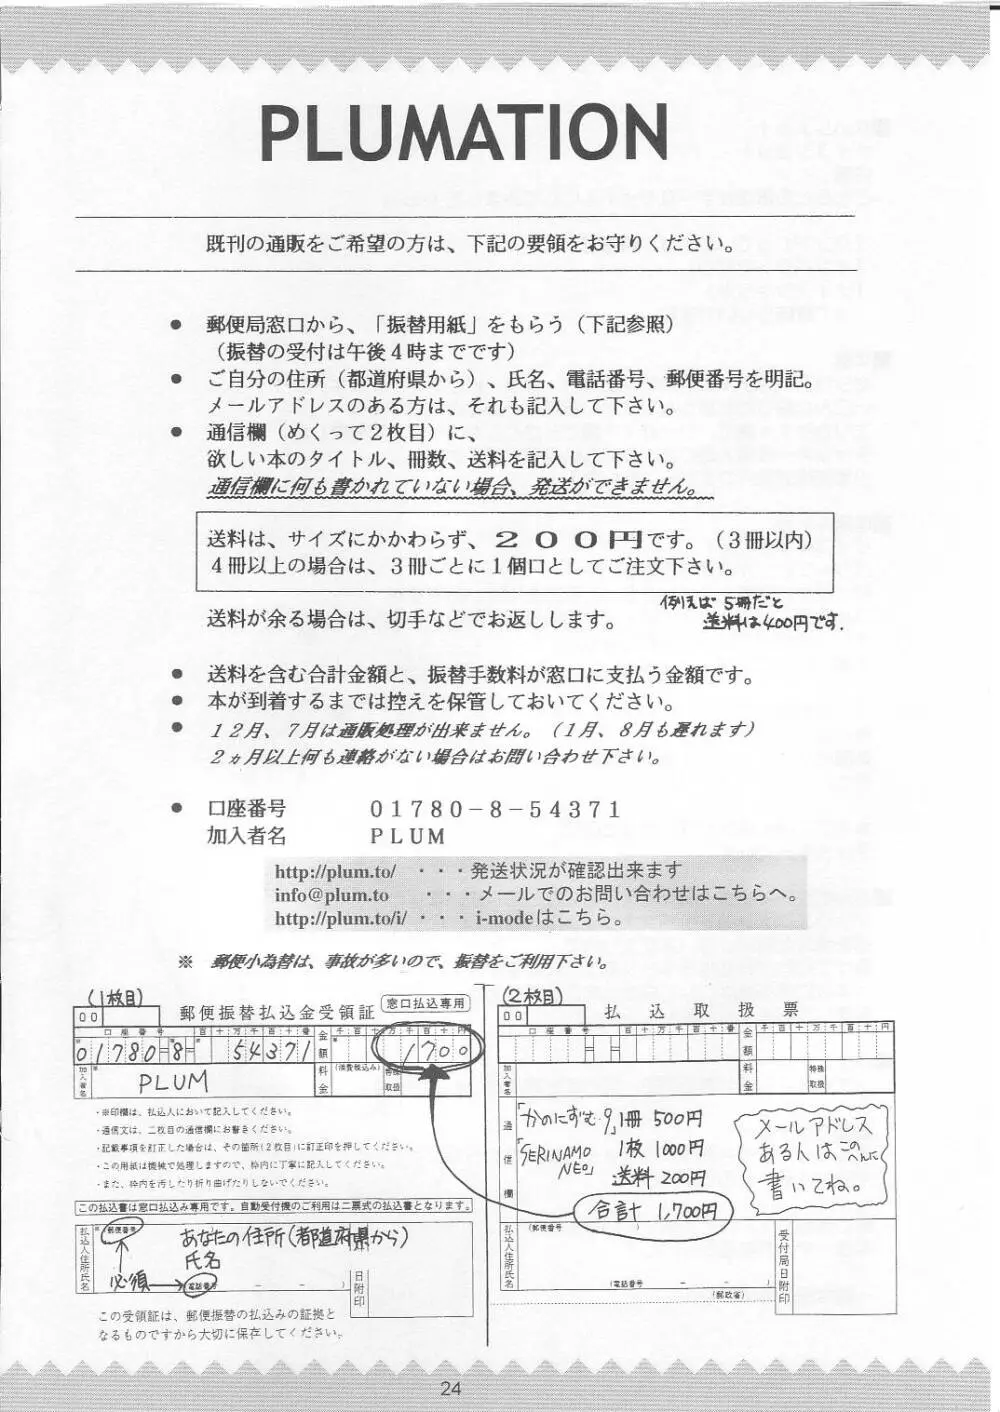 PLUMATION
既刊の通販をご希望の方は、下記の要領をお守りください。
● 郵便局窓口から、「振替用紙」をもらう（下記参照）
（振替の受付は午後４時までです）
● ご自分の住所（都道府県から）、氏名、電話番号、郵便番号を明記。
メールアドレスのある方は、それも記入して下さい。
● 通信欄（めくって２枚目）に、
欲しい本のタイトル、冊数、送料を記入して下さい。
通信欄に何も書かれていない場合、発送ができません。
送料は、サイズにかかわらず、２００円です。（３冊以内）
４冊以上の場合は、３冊ごとに１個口としてご注文下さい。
例えば 5冊だと
送料が余る場合は、切手などでお返しします。
送料は400円です.
● 送料を含む合計金額と、振替手数料が窓口に支払う金額です。
● 本が到着するまでは控えを保管しておいてください。
● １２月、７月は通販処理が出来ません。（１月、８月も遅れます）
２ヵ月以上何も連絡がない場合はお問い合わせ下さい。
● 口座番号 ０１７８０－８－５４３７１
加入者名 ＰＬＵＭ
http://plum.to/ ・・・発送状況が確認出来ます
info@plum.to ・・・メールでのお問い合わせはこちらへ。
http://plum.to/i/ ・・・ i-modeはこちら。
※ 郵便小為替は、事故が多いので、振替をご利用下さい。
(1枚目)
00
郵便振替払込金受領証
窓口払込専用
口座番号 百十万千百十番
金額
千百十万千百十円
01780=8= 54371
1700
加入者名
PLUM
料金
(消費税込み)
特殊取扱
・※印欄は、払込人において記入してください。
・通信文は、二枚目の通信欄にお書きください。
・記載事項を訂正した場合は、その箇所（２枚目）に訂正印を押してください。
・この用紙は機械で処理しますので、枠内に丁寧に記入してください。
・また、枠内を汚したり折り曲げたりしないでください。
この払込書は窓口払込み専用です。自動受付機のご利用は二票式の払込書となります。
払込人住所氏名
※
郵便番号
あなたの住所(都道府県から)
氏名
必須
電話番号 － －
日附印
この受領証は、郵便振替の払込みの証拠と
なるものですから大切に保存してください。
(2枚目)
00
払込取扱票
口座番号 百十万千百十番
金額
千百十万千百十円
加入者名
料金
特殊取扱
通信欄
「かのにずむ9」1冊 500円
「SERINAMO NEO」 1枚 1000円
送料 200円
合計 1,700円
メールアドレス
ある人はこのへんに
書いてね。
払込人住所氏名
(郵便番号 )
(電話番号 － － )
(郵政省)
受付局日附印
24